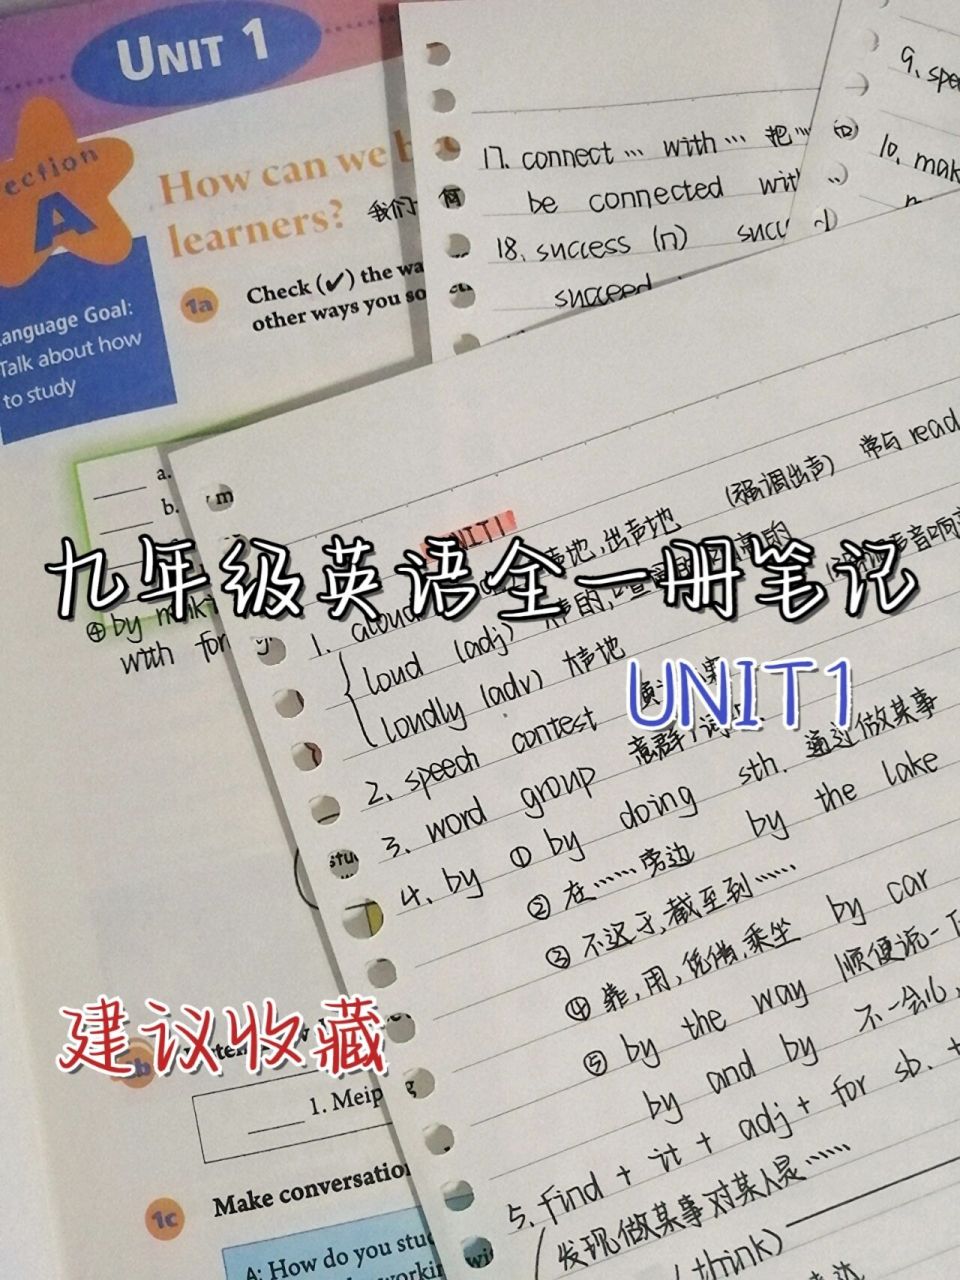 UNIT 1
ection
A
How can we b
learners? 我们
何
anguage Goal:
Talk about how
to study
1a
Check (✔) the wa
other ways you so
17. connect … with … 把…
be connected wit
18. success (n) succ
succeed
9. spe
10. mak
a.
b.
m
UNIT1
九年级英语全一册笔记
UNIT1
建议收藏
1. aloud 地,出声地 (强调出声) 常与 read
loud (adj) 大声的,喧
loudly (adv) 大声地
2. speech contest
3. word group 意群
4. by ① by doing sth. 通过做某事
② 在……旁边 by the lake
③ 不迟于,截至到……
④ 靠,用,凭借,乘坐 by car
⑤ by the way 顺便说一下
by and by 不一会儿
5. find + it + adj + for sb. +
发现做某事对某人是……
(think)
④ by
with for
stu
1. Meip
1c
Make conversation
A: How do you stud
workin
wi